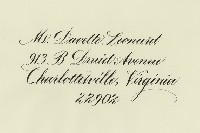 Ms. Davette Leonard
913. B Druid Avenue
Charlottesville, Virginia
22902